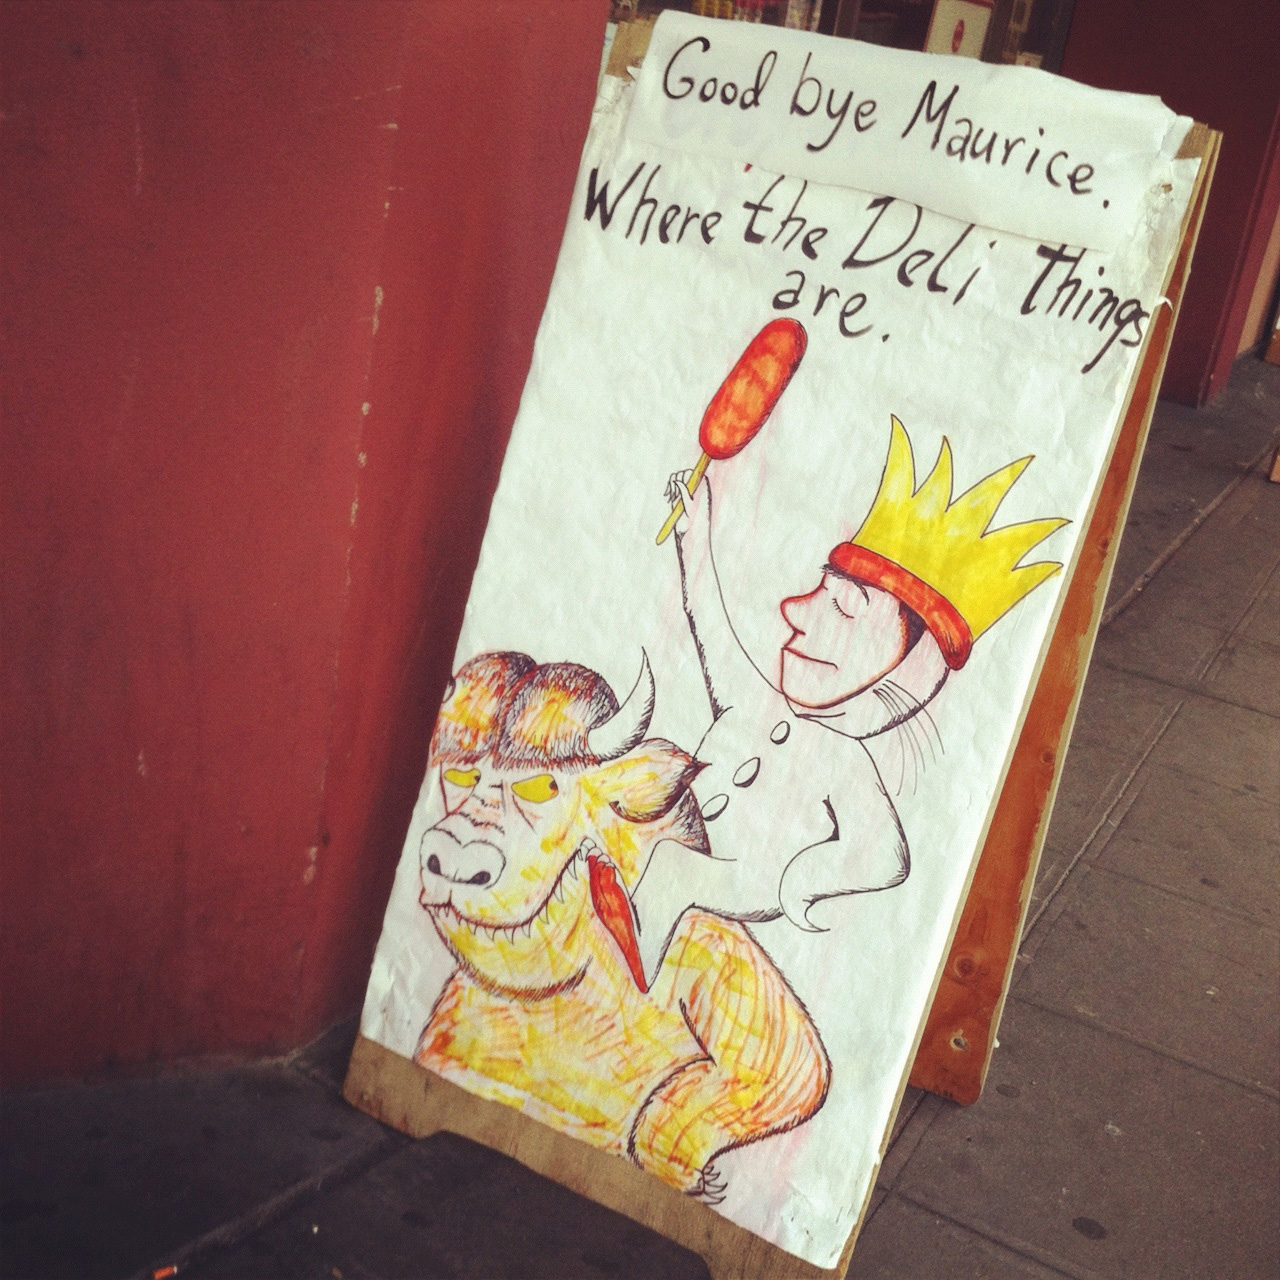 Good bye Maurice.
Where the Deli Things
are.